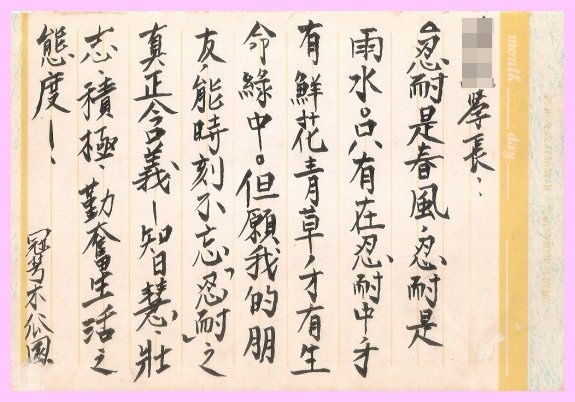 學長：
忍耐是春風，忍耐是
雨水。只有在忍耐中，才
有鮮花青草，才有生
命綠中。但願我的朋
友能時刻不忘「忍耐」之
真正含義—智慧、壯
志、積極、勤奮生活之
態度—
month day